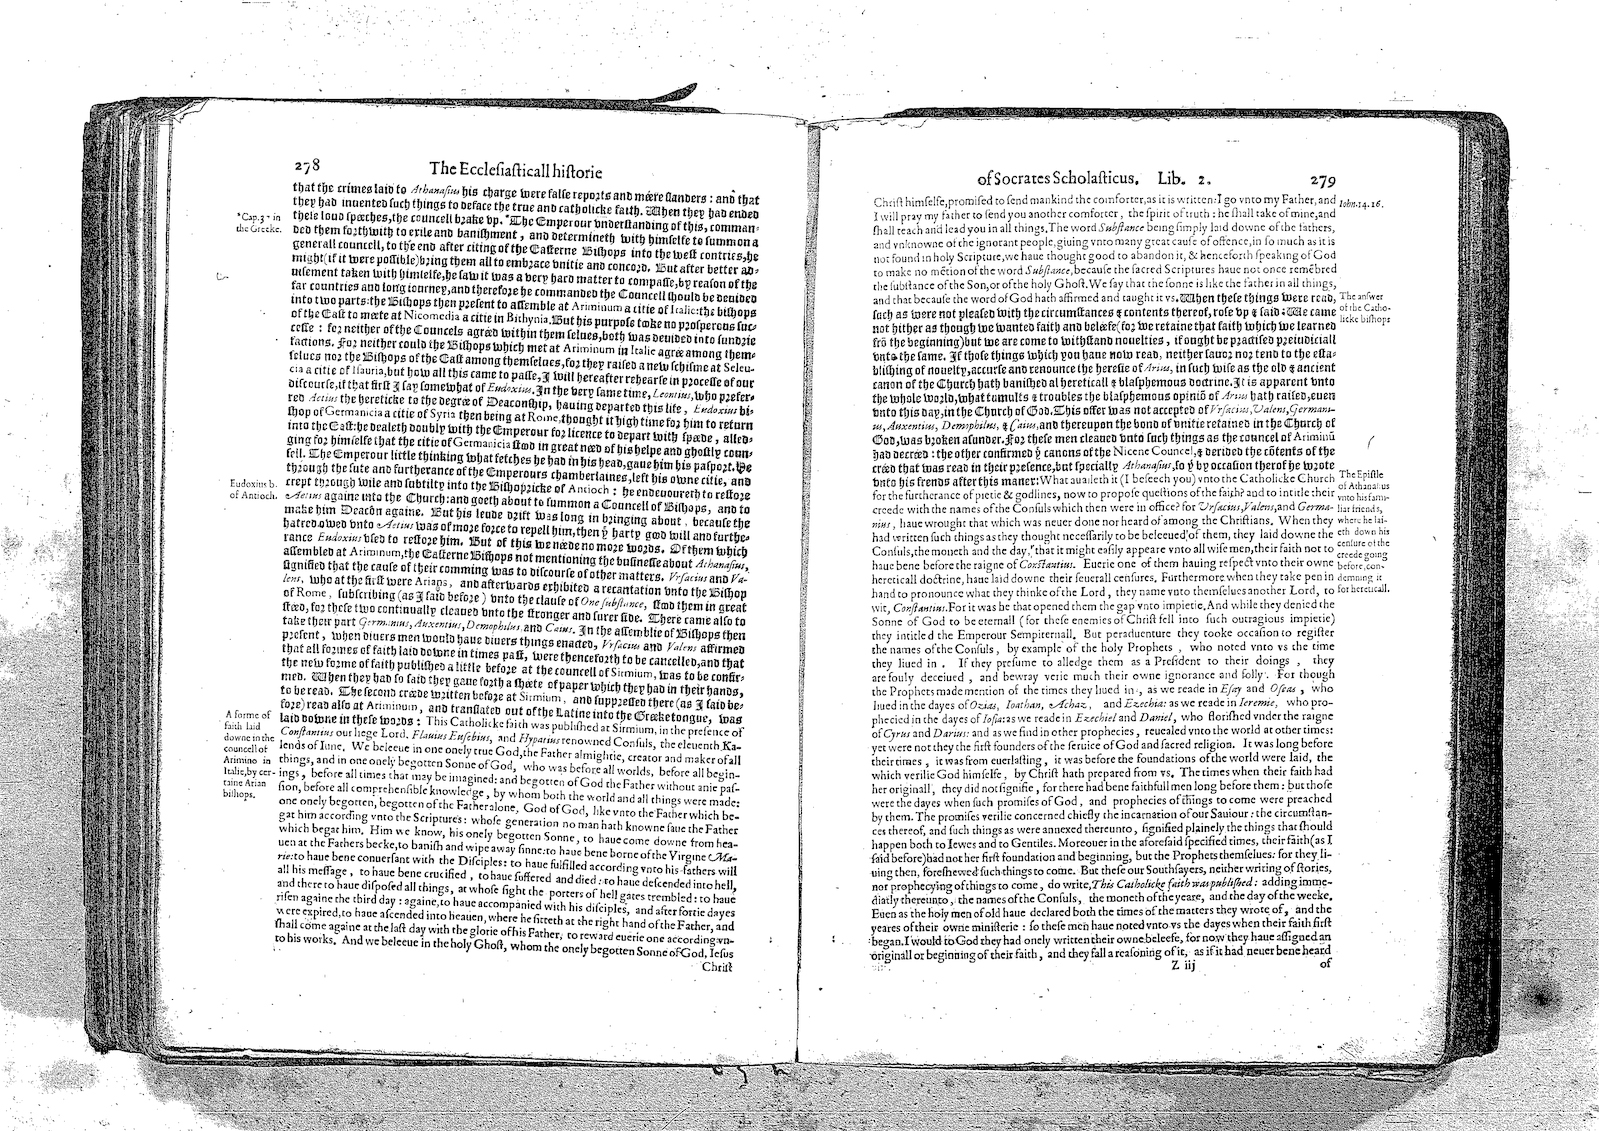 278 The Ecclesiasticall historie
that the crimes laid to Athanasius his charge were false reports and meere slanders : and that
they had inuented such things to deface the true and catholicke faith. When they had ended
these loud speeches, the councell brake vp. *The Emperour vnderstanding of this, comman-
ded them forthwith to exile and banishment, and determineth with himselfe to summon a
generall councell, to the end after citing of the Easterne Bishops into the west contries, he
might (if it were possible) bring them all to embrace vnitie and concord. But after better ad-
uisement taken with himselfe, he saw it was a very hard matter to compasse, by reason of the
far countries and long iourney, and therefore he commanded the Councell should be deuided
into two parts: the Bishops then present to assemble at Ariminum a citie of Italie: the bishops
of the East to meete at Nicomedia a citie in Bithynia. But his purpose toke no prosperous suc-
cesse : for neither of the Councels agreed within them selues, both was deuided into sundrie
factions. For neither could the Bishops which met at Ariminum in Italie agree among them-
selues nor the Bishops of the East among themselues, for they raised a new schisme at Seleu-
cia a citie of Isauria, but how all this came to passe, I will hereafter rehearse in processe of our
discourse, if that first I say somewhat of Eudoxius. In the very same time, Leontius, who prefer-
red Aetius the hereticke to the degree of Deaconship, hauing departed this life, Eudoxius bi-
shop of Germanicia a citie of Syria then being at Rome, thought it high time for him to return
into the East: he dealeth doubly with the Emperour for licence to depart with speede, alled-
ging for himselfe that the citie of Germanicia stood in great need of his helpe and ghostly coun-
sell. The Emperour little thinking what fetches he had in his head, gaue him his pasport. He
through the sute and furtherance of the Emperours chamberlaines, left his owne citie, and
crept through wile and subtilty into the Bishopricke of Antioch : he endeuoureth to restore
Aetius againe into the Church: and goeth about to summon a Councell of Bishops, and to
make him Deacõ againe. But his leude drift was long in bringing about, because the
hatred owed vnto Aetius was of more force to repell him, then ẏ harty good will and furthe-
rance Eudoxius vsed to restore him. But of this we neede no more words. Of them which
assembled at Ariminum, the Easterne Bishops not mentioning the businesse about Athanasius,
signified that the cause of their comming was to discourse of other matters. Vrsacius and Va-
lens, who at the first were Arians, and afterwards exhibited a recantation vnto the Bishop
of Rome, subscribing (as I said before) vnto the clause of One substance, stood them in great
steed, for these two continually cleaued vnto the stronger and surer side. There came also to
take their part Germanius, Auxentius, Demophilus and Caius. In the assemblie of Bishops then
present, when diuers men would haue diuers things enacted, Vrsacius and Valens affirmed
that all formes of faith laid downe in times past, were thenceforth to be cancelled, and that
the new forme of faith published a little before at the councell of Sirmium, was to be confir-
med. When they had so said they gaue forth a sheete of paper which they had in their hands,
to be read. The second creede written before at Sirmium, and suppressed there (as I said be-
fore) read also at Ariminum, and translated out of the Latine into the Greeke tongue, was
laid downe in these words : This Catholicke faith was published at Sirmium, in the presence of
Constantius our liege Lord. Flauius Eusebius, and Hypatius renowned Consuls, the eleuenth Ka-
lends of Iune. We beleeue in one onely true God, the Father almightie, creator and maker of all
things, and in one onely begotten Sonne of God, who was before all worlds, before all begin-
ings, before all times that may be imagined: and begotten of God the Father without anie pas-
sion, before all comprehensible knowledge, by whom both the world and all things were made:
one onely begotten, begotten of the Father alone, God of God, like vnto the Father which be-
gat him according vnto the Scriptures: whose generation no man hath knowne saue the Father
which begat him. Him we know, his onely begotten Sonne, to haue come downe from hea-
uen at the Fathers becke, to banish and wipe away sinne: to haue bene borne of the Virgine Ma-
rie: to haue bene conuersant with the Disciples: to haue fulfilled according vnto his fathers will
all his message, to haue bene crucified, to haue suffered and died: to haue descended into hell,
and there to haue disposed all things, at whose sight the porters of hell gates trembled: to haue
risen againe the third day : againe, to haue accompanied with his disciples, and after fortie dayes
were expired, to haue ascended into heauen, where he sitteth at the right hand of the Father, and
shall come againe at the last day with the glorie of his Father, to reward euerie one according vn-
to his works. And we beleeue in the holy Ghost, whom the onely begotten Sonne of God, Iesus
Christ
*Cap. 37 in
the Greeke.
Eudoxius b.
of Antioch.
A forme of
faith laid
downe in the
councell of
Arimino in
Italie, by cer-
taine Arian
bishops.
of Socrates Scholasticus. Lib. 2. 279
Christ himselfe, promised to send mankind the comforter, as it is written: I go vnto my Father, and
I will pray my father to send you another comforter, the spirit of truth : he shall take of mine, and
shall teach and lead you in all things. The word Substance being simply laid downe of the fathers,
and vnknowne of the ignorant people, giuing vnto many great cause of offence, in so much as it is
not found in holy Scripture, we haue thought good to abandon it, & henceforth speaking of God
to make no mẽtion of the word Substance, because the sacred Scriptures haue not once remẽbred
the substance of the Son, or of the holy Ghost. We say that the sonne is like the father in all things,
and that because the word of God hath affirmed and taught it vs. When these things were read,
such as were not pleased with the circumstances & contents thereof, rose vp & said: We came
not hither as though we wanted faith and beleefe (for we retaine that faith which we learned
frõ the beginning) but we are come to withstand nouelties, if ought be practised preiudiciall
vnto the same. If those things which you haue now read, neither sauor nor tend to the esta-
blishing of nouelty, accurse and renounce the heresie of Arius, in such wise as the old & ancient
canon of the Church hath banished al hereticall & blasphemous doctrine. It is apparent vnto
the whole world, what tumults & troubles the blasphemous opiniõ of Arius hath raised, euen
vnto this day, in the Church of God. This offer was not accepted of Vrsacius, Valens, Germani-
us, Auxentius, Demophilus, & Caius, and thereupon the bond of vnitie retained in the Church of
God, was broken asunder. For these men cleaued vnto such things as the councel of Ariminũ
had decreed : the other confirmed ẏ canons of the Nicene Councel, & derided the cõtents of the
creed that was read in their presence, but specially Athanasius, so ẏ by occasion therof he wrote
vnto his frends after this maner: What auaileth it (I beseech you) vnto the Catholicke Church
for the furtherance of pietie & godlines, now to propose questions of the faith? and to intitle their
creede with the names of the Consuls which then were in office? for Vrsacius, Valens, and Germa-
nius, haue wrought that which was neuer done nor heard of among the Christians. When they
had written such things as they thought necessarily to be beleeued of them, they laid downe the
Consuls, the moneth and the day, that it might easily appeare vnto all wise men, their faith not to
haue bene before the raigne of Constantius. Euerie one of them hauing respect vnto their owne
hereticall doctrine, haue laid downe their seuerall censures. Furthermore when they take pen in
hand to pronounce what they thinke of the Lord, they name vnto themselues another Lord, to
wit, Constantius. For it was he that opened them the gap vnto impietie. And while they denied the
Sonne of God to be eternall (for these enemies of Christ fell into such outragious impietie)
they intitled the Emperour Sempiternall. But peraduenture they tooke occasion to register
the names of the Consuls, by example of the holy Prophets, who noted vnto vs the time
they liued in. If they presume to alledge them as a President to their doings, they
are fouly deceiued, and bewray verie much their owne ignorance and folly. For though
the Prophets made mention of the times they liued in, as we reade in Esay and Oseas, who
liued in the dayes of Ozias, Ioathan, Achaz, and Ezechia: as we reade in Ieremie, who pro-
phecied in the dayes of Iosia: as we reade in Ezechiel and Daniel, who florished vnder the raigne
of Cyrus and Darius: and as we find in other prophecies, reuealed vnto the world at other times:
yet were not they the first founders of the seruice of God and sacred religion. It was long before
their times, it was from euerlasting, it was before the foundations of the world were laid, the
which verilie God himselfe, by Christ hath prepared from vs. The times when their faith had
her originall, they did not signifie, for there had bene faithfull men long before them: but those
were the dayes when such promises of God, and prophecies of things to come were preached
by them. The promises verilie concerned chiefly the incarnation of our Sauiour: the circumstan-
ces thereof, and such things as were annexed thereunto, signified plainely the things that should
happen both to Iewes and to Gentiles. Moreouer in the aforesaid specified times, their faith (as I
said before) had not her first foundation and beginning, but the Prophets themselues: for they li-
uing then, foreshewed such things to come. But these our Southsayers, neither writing of stories,
nor prophecying of things to come, do write, This Catholicke faith was published: adding imme-
diatly thereunto, the names of the Consuls, the moneth of the yeare, and the day of the weeke.
Euen as the holy men of old haue declared both the times of the matters they wrote of, and the
yeares of their owne ministerie : so these men haue noted vnto vs the dayes when their faith first
began. I would to God they had onely written their owne beleefe, for now they haue assigned an
originall or beginning of their faith, and they fall a reasoning of it, as if it had neuer bene heard
Z iij of
Iohn. 14. 16.
The answer
of the Catho-
licke bishops
The Epistle
of Athanasius
vnto his fami-
liar friends,
where he lai-
eth down his
censure of the
creede going
before, con-
demning it
for hereticall.